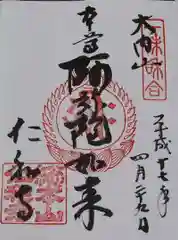 大内山
平成十七年
四月二十九日
本尊
阿弥陀如来
仁和寺